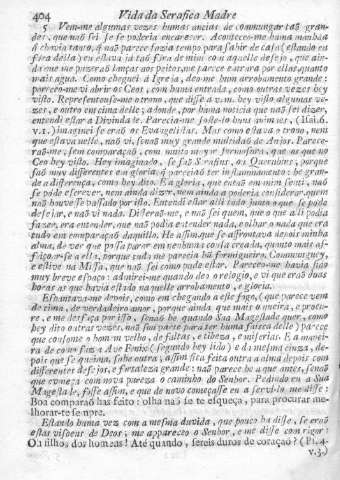 404 Vida da Serafica Madre
5 Vem-me algumas vezes humas ancias de commungar taõ gran-
des, que naõ sei se se poderia encarecer. Aconteceo-me huma manhãa
q̃ chovia tanto, q̃ naõ parece fazia tempo para sahir de casa (estando eu
fóra della) eu estava já taõ fóra de mim com aquelle desejo, que ain-
da que me puserão lanças aos peitos, me parece entrára por ellas, quanto
mais agua. Como cheguei á Igreja, deo-me hum arrobamento grande:
pareceo-me vi abrir os Ceos, com huma entrada, como outras vezes hey
visto. Representouse-me o trono, que disse a v.m. hey visto algumas ve-
zes, e outro encima delle; aonde, por huma noticia que naõ sei dizer,
entendi estar a Divindade. Parecia-me sostelo huns animaes, (Isai. 6.
v.1.) imaginei se eraõ os Evangelistas. Mas como estava o trono, nem
que estava nelle, naõ vi, senaõ muy grande multidaõ de Anjos. Parece-
raõ-me, sem comparaçaõ, com muito mayor fermosura, que os que no
Ceo hey visto. Hey imaginado, se saõ Serafins, ou Querubins, porque
saõ muy differentes em gloria; q̃ parecia õ ter inflammamento: he gran-
de a differença, como hey dito. E a gloria, que entaõ em mim senti, naõ
se póde escrever, nem ainda dizer, nem ainda a poderia considerar quem
naõ houvesse passado por isto. Entendi estar alli tudo junto o que se póde
desejar, e naõ vi nada. Disseraõ-me, e naõ sei quem, que o que alli podia
fazer, era entender, que naõ podia entender nada, e olhar o nada que era
tudo em comparaçaõ daquillo. He assim, que se affrontava depois minha
alma, de ver que possa parar em nenhuma cousa creada, quanto mais af-
feiçoar-se a ella, porque tudo me parecia hũ formigueiro. Communguey,
e estive na Missa, que naõ sei como pude estar. Pareceo-me havia sido
muy breve espaço: admirei-me quando deo o relogio, e vi que eraõ duas
horas as que havia estado naquelle arrobamento, e gloria.
Espantava-me depois, como em chegando a este fogo, (que parece vem
de cima, de verdadeiro amor, porque ainda que mais o queira, e procu-
re, e me desfaça por isso, senaõ he quando Sua Magestade quer, como
hey dito outras vezes, naõ sou parte para ter huma faisca delle) parece
que consome o homem velho, de faltas, e tibeza, e miserias. E a manei-
ra de como faz a Ave Fenis (segundo hey lido) e da mesma cinza, de-
pois que se queima, sahe outra; assim fica feita outra a alma depois com
differentes desejos, e fortaleza grande: naõ parece he a que antes, senaõ
que começa com nova pureza o caminho do Senhor. Pedindo eu a Sua
Magestade, fosse assim, e que de novo começasse eu a servi-lo, me disse:
Boa comparaçaõ has feito: olha naõ se te esqueça, para procurar me-
lhorar-te sempre.
Estando huma vez com a mesma duvida, que pouco ha disse, se eraõ
estas visoens de Deos, me appareceo o Senhor, e me disse com rigor:
Oh filhos dos homens! Até quando, sereis duros de coraçaõ? (Ps. 4.
v. 3.)